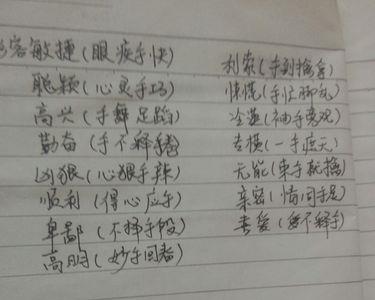 容敏捷(眼疾手快)
聪颖(心灵手巧)
高兴(手舞足蹈)
勤奋(手不释卷)
凶狠(心狠手辣)
顺利(得心应手)
卑鄙(不择手段)
高明(妙手回春)
利索(手到擒拿)
慌忙(手忙脚乱)
冷漠(袖手旁观)
专横(一手遮天)
无能(束手就擒)
亲密(情同手足)
喜爱(爱不释手)